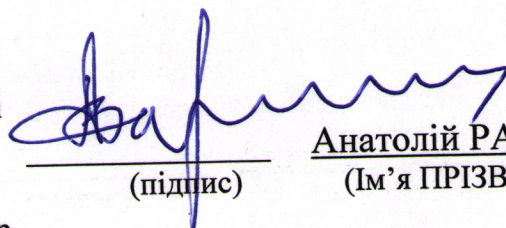 Анатолій РА
(підпис) (Ім’я ПРІЗВ